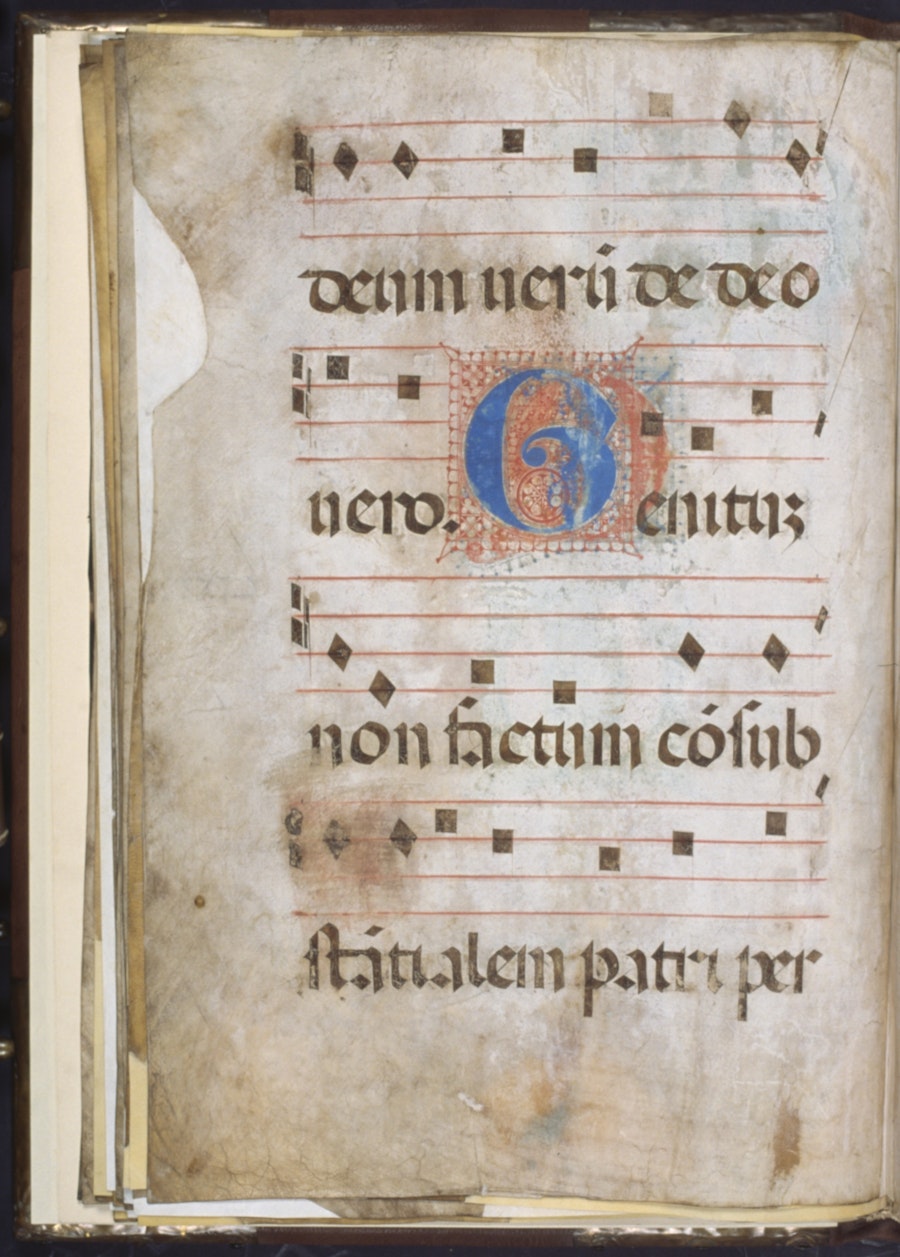 deum uerū de deo
uero. Genituʒ
non factum cōsub
stātialem patri per